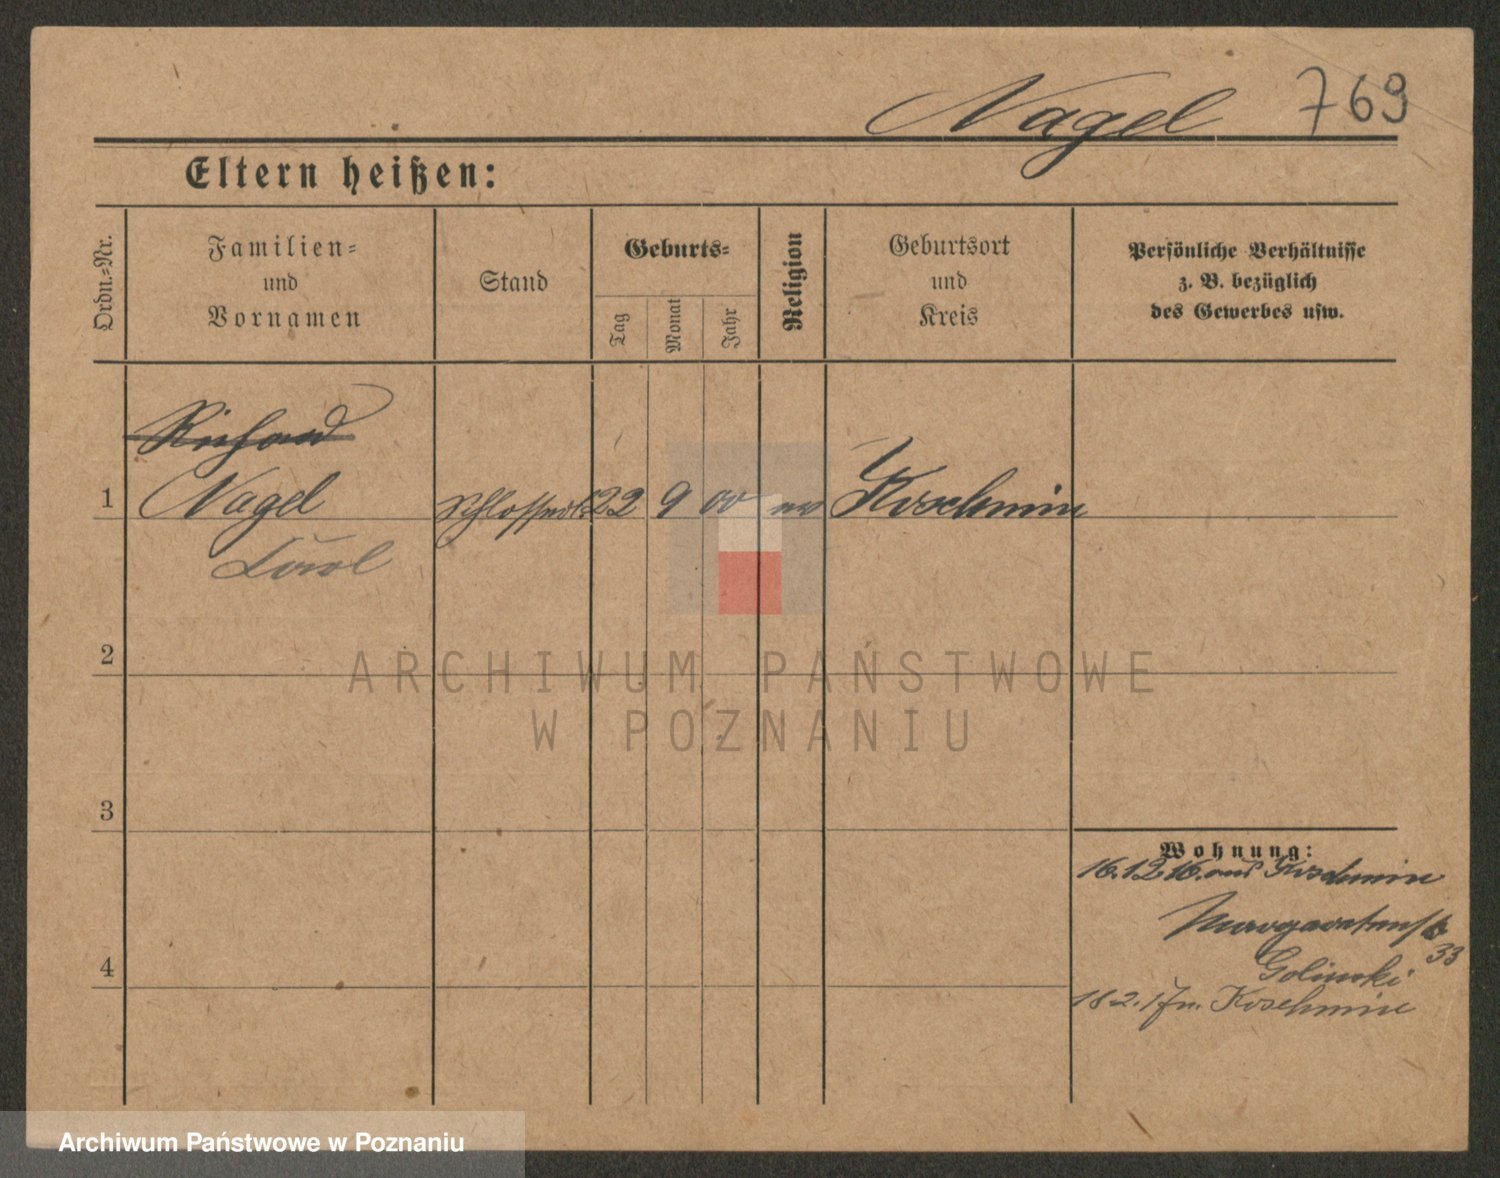 Nagel 769
Eltern heißen:
Ordn.=Nr.
Familien=
und
Vornamen
Stand
Geburts=
Tag
Monat
Jahr
Religion
Geburtsort
und
Kreis
Persönliche Verhältnisse
z. B. bezüglich
des Gewerbes usw.
Richard
1 Nagel 22 9 00 ev Koschmin
Karl
2
3
4
Wohnung:
16.12.16. aus Koschmin
Margaretenstr
33
Golinski
18 2. 17 n. Koschmin
ARCHIWUM PAŃSTWOWE
W POZNANIU
Archiwum Państwowe w Poznaniu